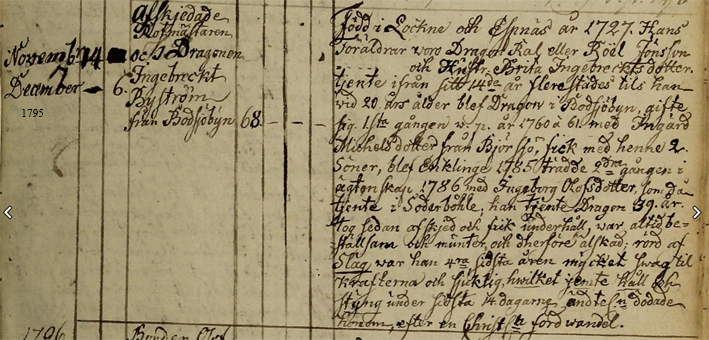 afskjedade
Rotmästaren
Novemb: 14 och Dragonen
December 7 6. Ingebreckt
Byström
1795 från Bodsjöbyn 68
Född i Lockne och Espnäs år 1727. Hans
Föräldrar voro Dragon Kal eller Röel Jönsson
och Hustr. Brita Ingebrecktsdotter.
tjente ifrån sitt 14de år flerestädes tils han
vid 20 års ålder blef Dragon i Bodsjöbyn, gifte
sig 1sta gången år 1760 à 61. med Ingärd
Michelsdotter från Bjørsjö, fick med henne 2
Söner, blef Enklinge 1785 trädde 2dra gången i
ägtenskap 1786 med Ingeborg Olofsdotter, som då
tjente i Söderböhle, han tjente Dragon 39. år.
tog sedan afsked och fick underhåll, war altid be-
ställsam och munter, och dherföre älskad; rörd af
Slag, war han 4ra sidsta åren mycket swag til
krafterna och sjuklig, hwilket jemte Håll och
styng under sidsta 14 dagarne ändte dödade
honom, efter en Christlig förd wandel.
1796 Bonden Olof